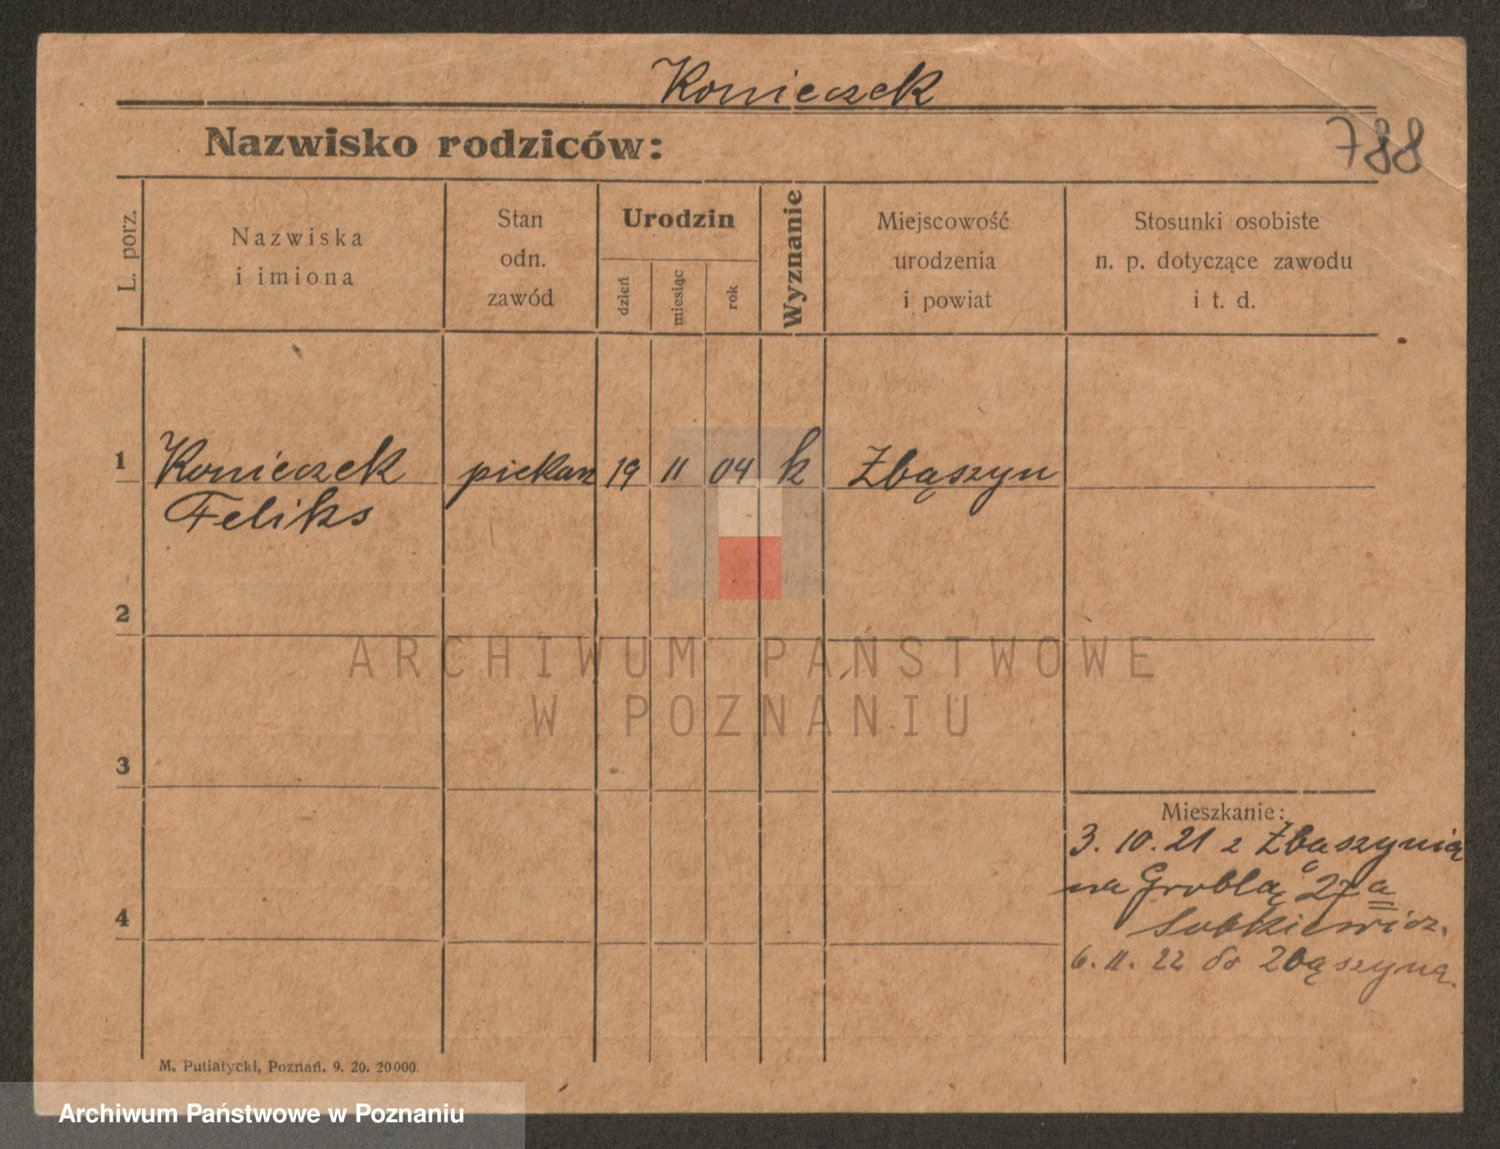 Konieczek
Nazwisko rodziców:
788
L. porz.
Nazwiska
i imiona
Stan
odn.
zawód
Urodzin
dzień
miesiąc
rok
Wyznanie
Miejscowość
urodzenia
i powiat
Stosunki osobiste
n. p. dotyczące zawodu
i t. d.
1
Konieczek
Feliks
piekarz
19
11
04
k
Zbąszyn
2
ARCHIWUM PAŃSTWOWE
W POZNANIU
3
Mieszkanie:
3. 10. 21 z Zbąszynia
na Groblę 27a
Sobkiewicz.
4
6. 11. 22 do Zbąszyna.
M. Putiatycki, Poznań. 9. 20. 20000.
Archiwum Państwowe w Poznaniu